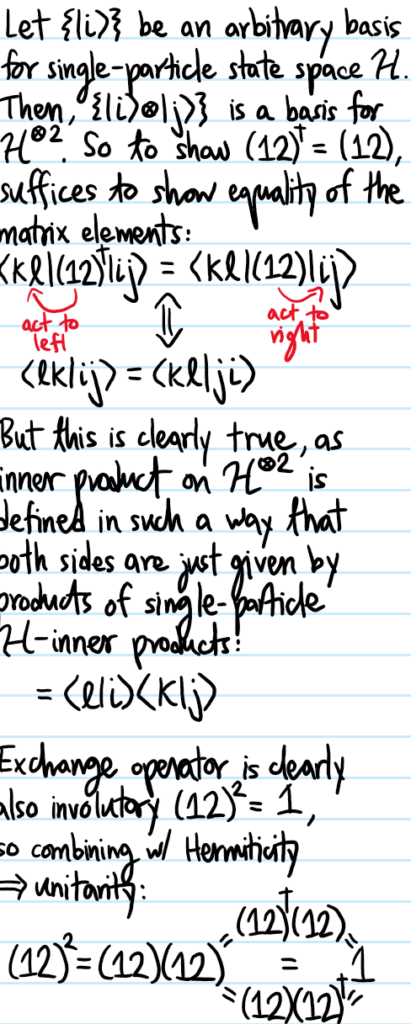 Let {|i⟩} be an arbitrary basis
for single-particle state space ℋ.
Then, {|i⟩⊗|j⟩} is a basis for
ℋ^⊗2. So to show (12)^† = (12),
suffices to show equality of the
matrix elements:
⟨kℓ|(12)^†|ij⟩ = ⟨kℓ|(12)|ij⟩
act to left
⇕
act to right
⟨ℓk|ij⟩ = ⟨kℓ|ji⟩
But this is clearly true, as
inner product on ℋ^⊗2 is
defined in such a way that
both sides are just given by
products of single-particle
ℋ-inner products:
= ⟨ℓ|i⟩⟨k|j⟩
Exchange operator is clearly
also involutory (12)² = 1,
so combining w/ Hermiticity
⇒ unitarity:
(12)^†(12)
(12)² = (12)(12) = 1
=(12)(12)^†